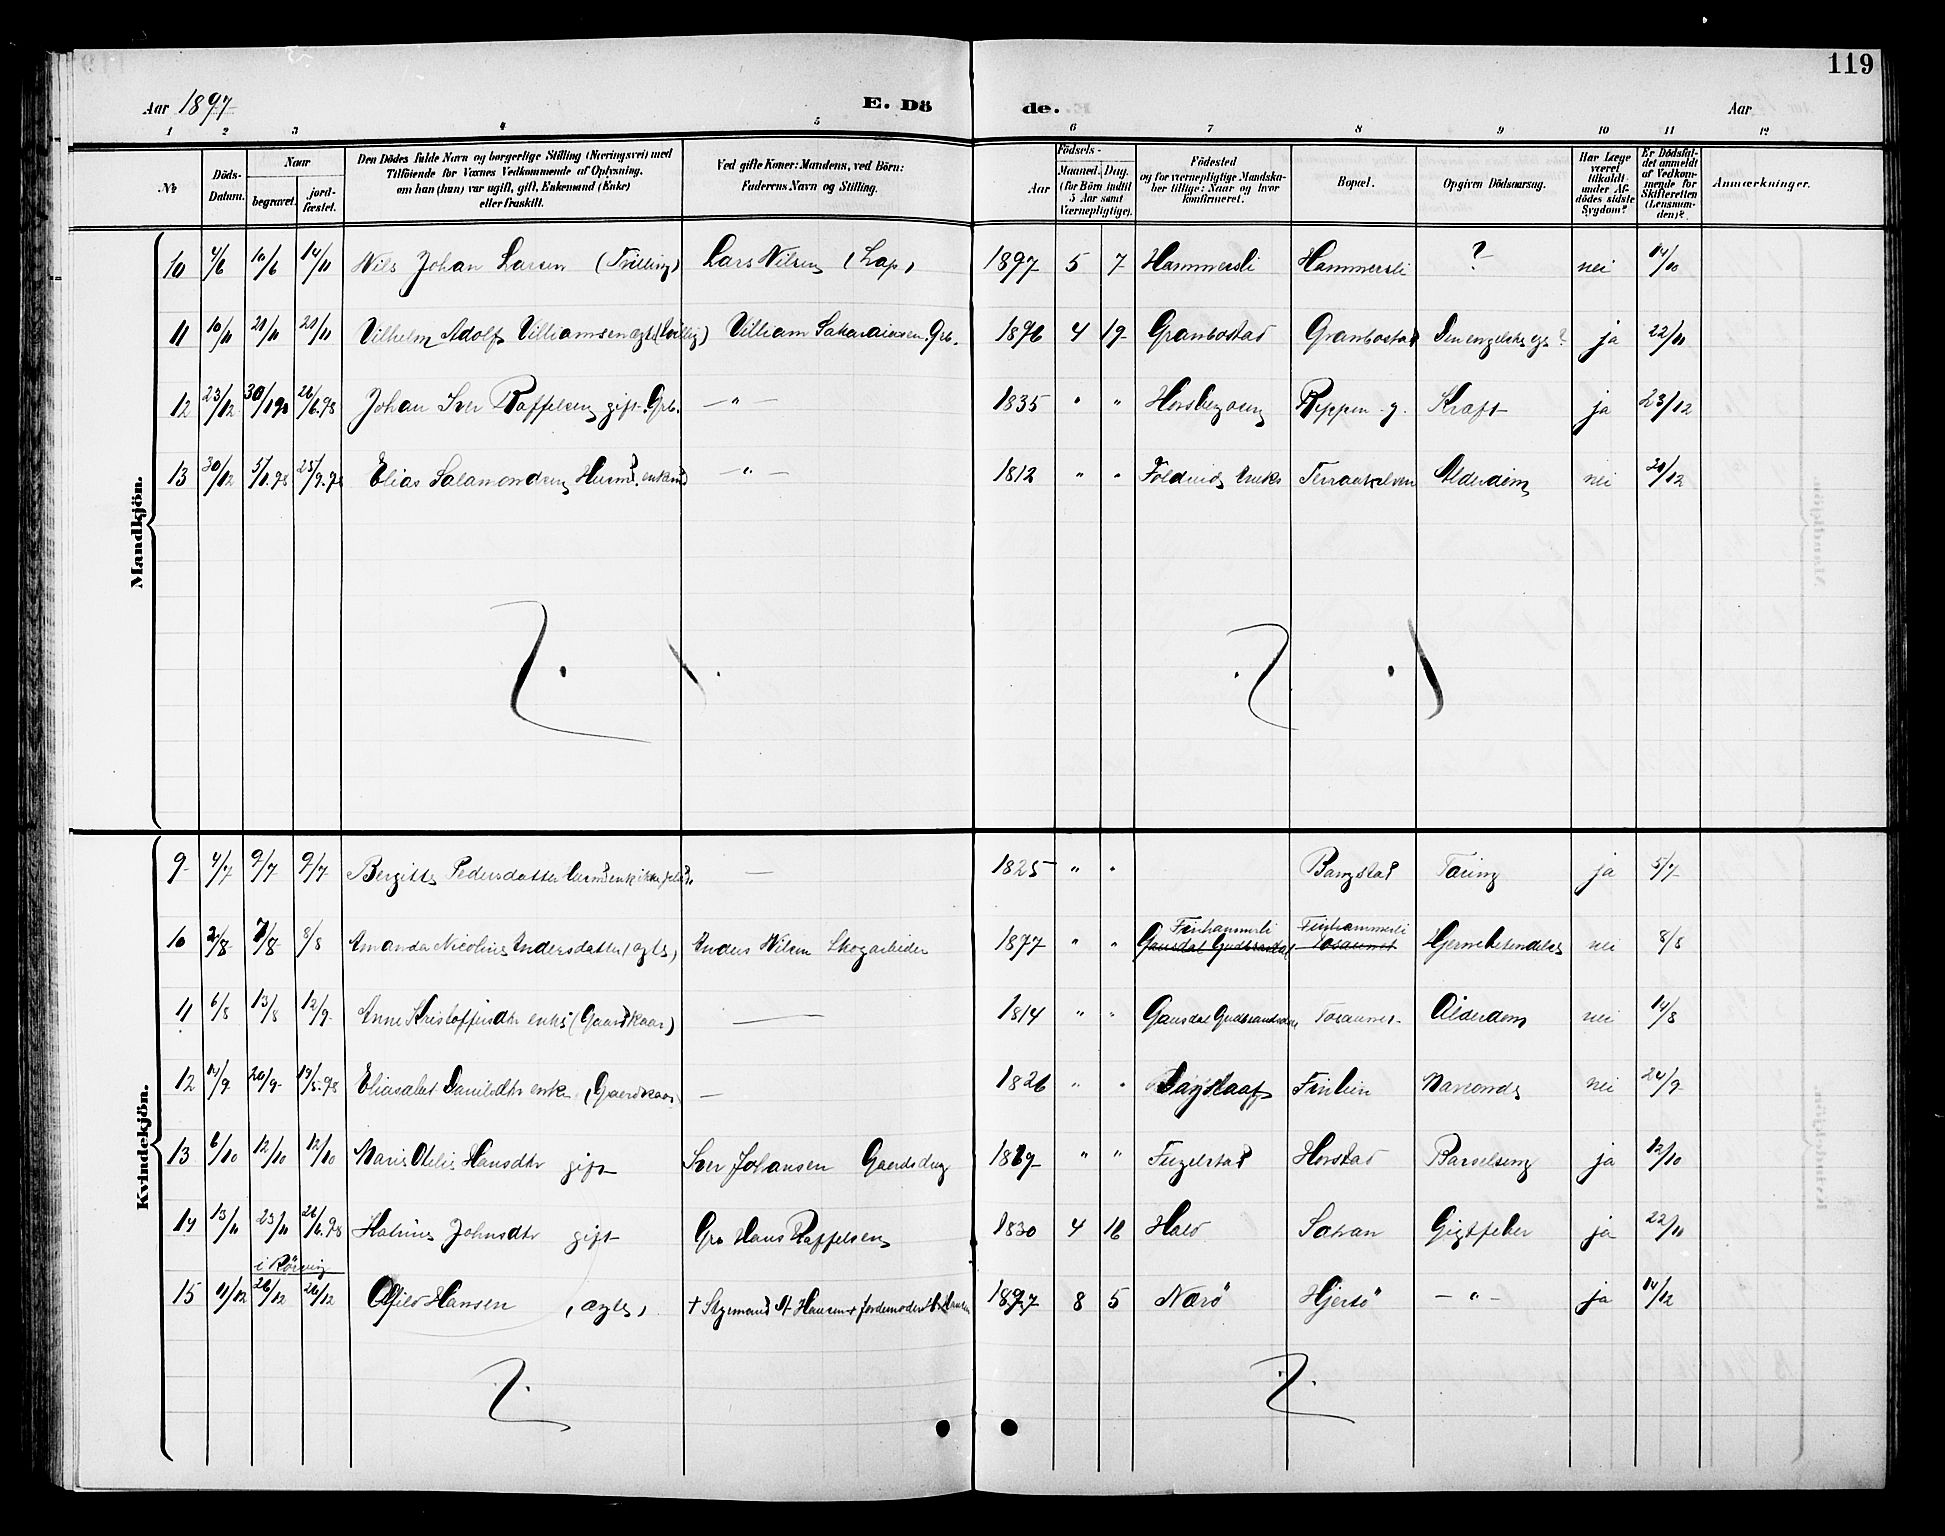 119
Aar 1897 E. Dö de. Aar
1 2 3 4 5 6 7 8 9 10 11 12
No
Döds-Datum.
Naar
begravet.
jord-fæstet.
Den Dödes fulde Navn og borgerlige Stilling (Næringsvei) med
Tilföiende for Voxnes Vedkommende af Oplysning,
om han (hun) var ugift, gift, Enkemand (Enke)
eller fraskilt.
Ved gifte Koner: Mandens, ved Börn:
Faderens Navn og Stilling.
Födsels-
Aar
Maaned. Dag.
(for Börn indtil
5 Aar samt
Værnepligtige).
Födested
og for værnepligtige Mandska-
ber tillige: Naar og hvor
konfirmeret.
Bopæl.
Opgiven Dödsaarsag.
Har Læge
været
tilkaldt
under Af-
dödes sidste
Sygdom?
Er Dödsfal-
det anmeldt
af Vedkom-
mende for
Skifteretten
(Lensman-
den)?
Anmærkninger.
Mandkjön.
10 4/6 10/6 14/11 Nils Johan Larsen (Tvilling) Lars Nilsen (Lap) 1897 5 7 Hammersli Hammersli ? nei 14/10
11 10/11 21/11 21/11 Vilhelm Adolf Villiamsen ægte (tvillig) Villiam Sakariassen Grb. 1896 4 19 Granbostad Granbostad Den engelske syge? ja 22/11
12 23/12 30/1 98 26/6.98 Johan Iver Raffelsen gift. Grb. — " — 1835 " " Horsbergaung Reppen - g. Kraft ja 23/12
13 30/12 5/1.98 25/9.98 Elias Salamondsen Husmd. enkemd — " — 1812 " " Foldereid Terraakelven Alderdom nei 20/12
Kvindekjön.
9 4/7 9/7 9/7 Bergitte Pedersdatter — 1825 " " Bangstad Tæring ja 5/7
10 2/8 7/8 8/8 Amanda Nicoline Andersdatter (ægte) Anders Nilsen Skogarbeider 1877 " " Finhammerli Finhammerli Hjernebetændelse nei 8/8
Gausdal Gudbrandsdal Tosaunet
11 6/8 13/8 12/9 Anne Kristoffersdtr enke (Gaardkaar) — 1814 " " Gausdal Gudbrandsdal Tosaunet Alderdom nei 14/8
12 14/9 20/9 19/5.98 Eliasabet Danielsdtr enke (Gaardkaar) — 1826 " " Finlien nei 24/9
13 6/10 12/10 12/10 Marie Otelie Hansdtr gift Iver Johansen Gaardbrug " " Fugelstad Horstad Barselseng ja 12/10
14 13/11 23/11 26/6.98 Katrine Johnsdtr gift Gra Hans Raffelsen 1830 4 16 Sakan Gigtfeber ja 22/11
i Rörvig
15 11/12 26/12 26/12 Hansen (ægte) 1897 8 5 Nærö — " — ja 14/12